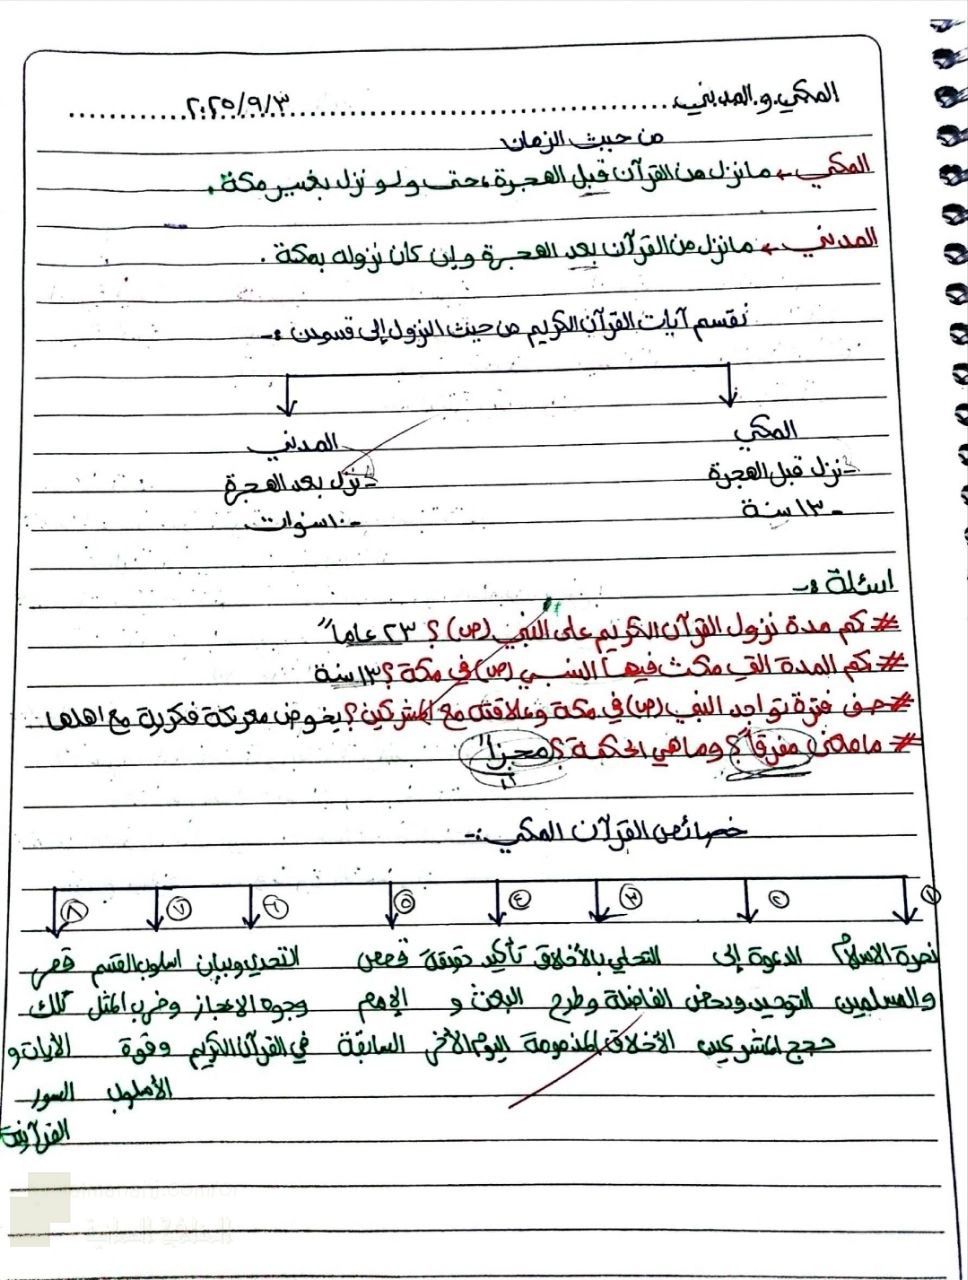 المكي و المدني ٢٠٢٥/٩/٣
من حيث الزمان
المكي ← ما نزل من القرآن قبل الهجرة، حتى ولو نزل بغير مكة.
المدني ← ما نزل من القرآن بعد الهجرة وإن كان نزوله بمكة.
نقسم آيات القرآن الكريم من حيث النزول إلى قسمين :-
المكي المدني
- نزل قبل الهجرة - نزل بعد الهجرة
- ١٣ سنة - ١٠ سنوات
اسئلة :-
# كم مدة نزول القرآن الكريم على النبي (ص)؟ ٢٣ عاماً
# كم المدة التي مكث فيها النبي (ص) في مكة؟ ١٣ سنة
# صف فترة تواجد النبي (ص) في مكة وعلاقته مع المشركين؟ يخوض معركة فكرية مع اهلها
# ما معنى مفرقاً؟ وما هي الحكمة؟ مجزأً
خصائص القرآن المكي :-
١ ٢ ٣ ٤ ٥ ٦ ٧ ٨
نصرة الاسلام الدعوة إلى التحلي بالأخلاق تأكيد حقيقة قصص التحدي وبيان اسلوب القسم قصر
والمسلمين التوحيد ودحض الفاضلة وطرح البعث و الإمم وجوه الإعجاز وضرب المثل تلك
حجج المشركين الأخلاق المذمومة اليوم الأخر السابقة في القرآن الكريم وقوة الآيات و
الأسلوب السور
القرآنية